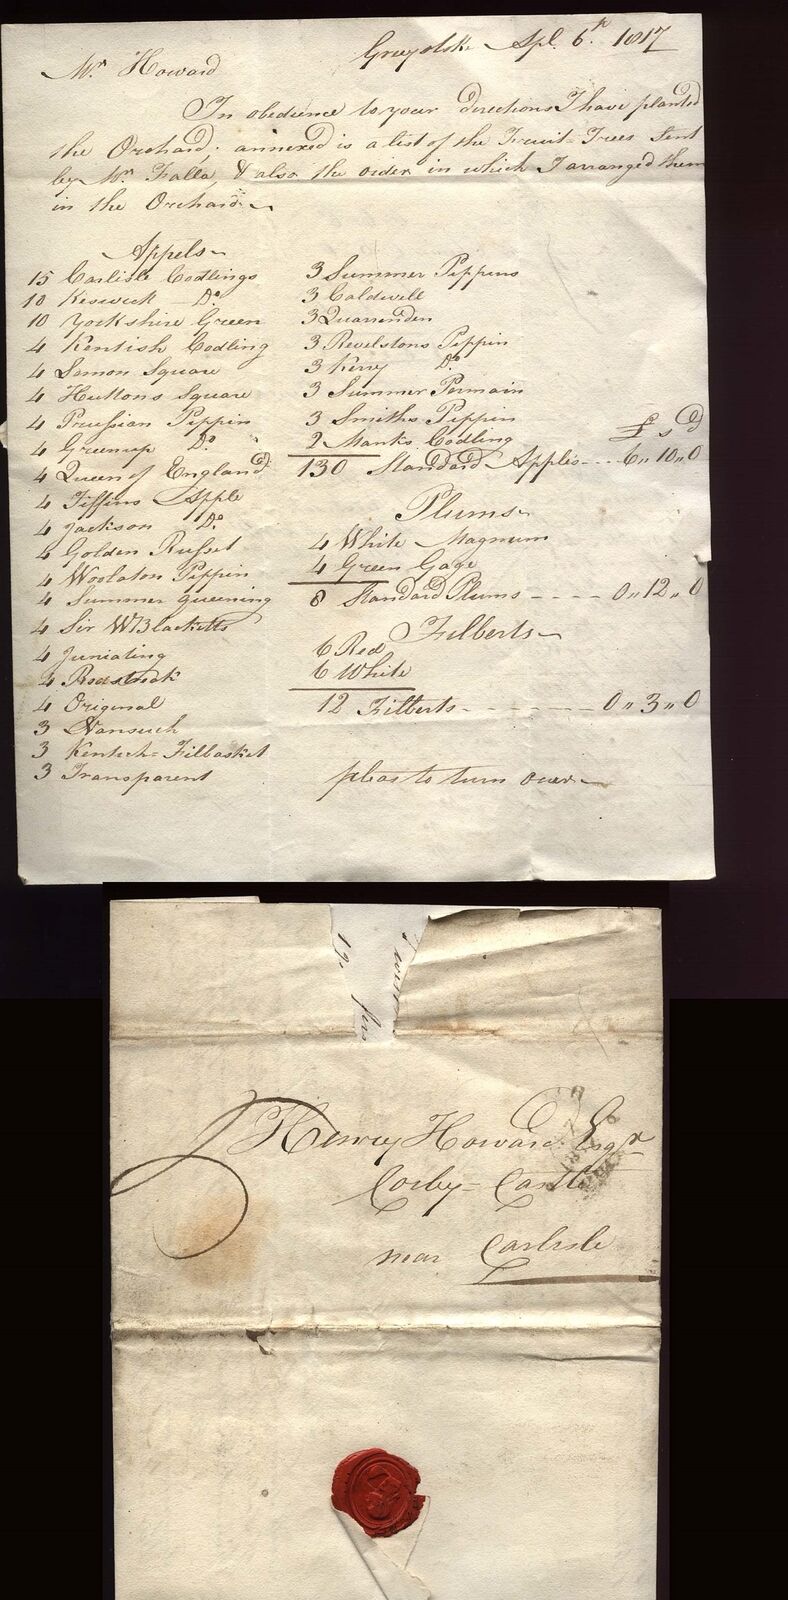 Greystoke Apl. 6th 1817
Mr Howard
In obedience to your directions I have planted
the Orchard; annexed is a list of the Fruit-Trees Sent
by Mr Falla, & also the order in which I arranged them
in the Orchard.
Appels
15 Carlisle Codlings
10 Keswick Do
10 Yorkshire Green
4 Kentish Codling
4 Lemon Square
4 Huttons Square
4 Prussian Pippin
4 Greenup Do
4 Queen of England
4 Tiffins Apple
4 Jackson Do
4 Golden Russet
4 Woolaton Pippin
4 Summer queening
4 Sir W Blacketts
4 Juniating
4
4 Original
3 Nansuch
3 Kentish-Fillbasket
3 Transparent
3 Summer Pippins
3 Caldwell
3 Quarrenden
3 Revelstons Pippin
3 Kerry Do
3 Summer Permain
3 Smiths Pippin
2 Manks Codling
£ s d
130 Standard Apples --- 6 " 10 " 0
Plums
4 White Magnum
4 Green Gage
8 Standard Plums ---- 0 " 12 " 0
Filberts
6 Red
6 White
12 Filberts ------- 0 " 3 " 0
pleas to turn over
Henry Howard Esqr
Corby-Castle
near Carlisle